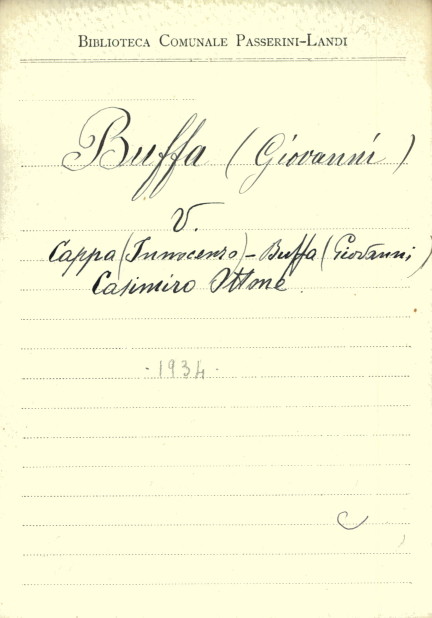 BIBLIOTECA COMUNALE PASSERINI-LANDI
Buffa (Giovanni)
V.
Cappa (Innocenzo) - Buffa (Giovanni)
Casimiro Ottone
- 1934 -
C